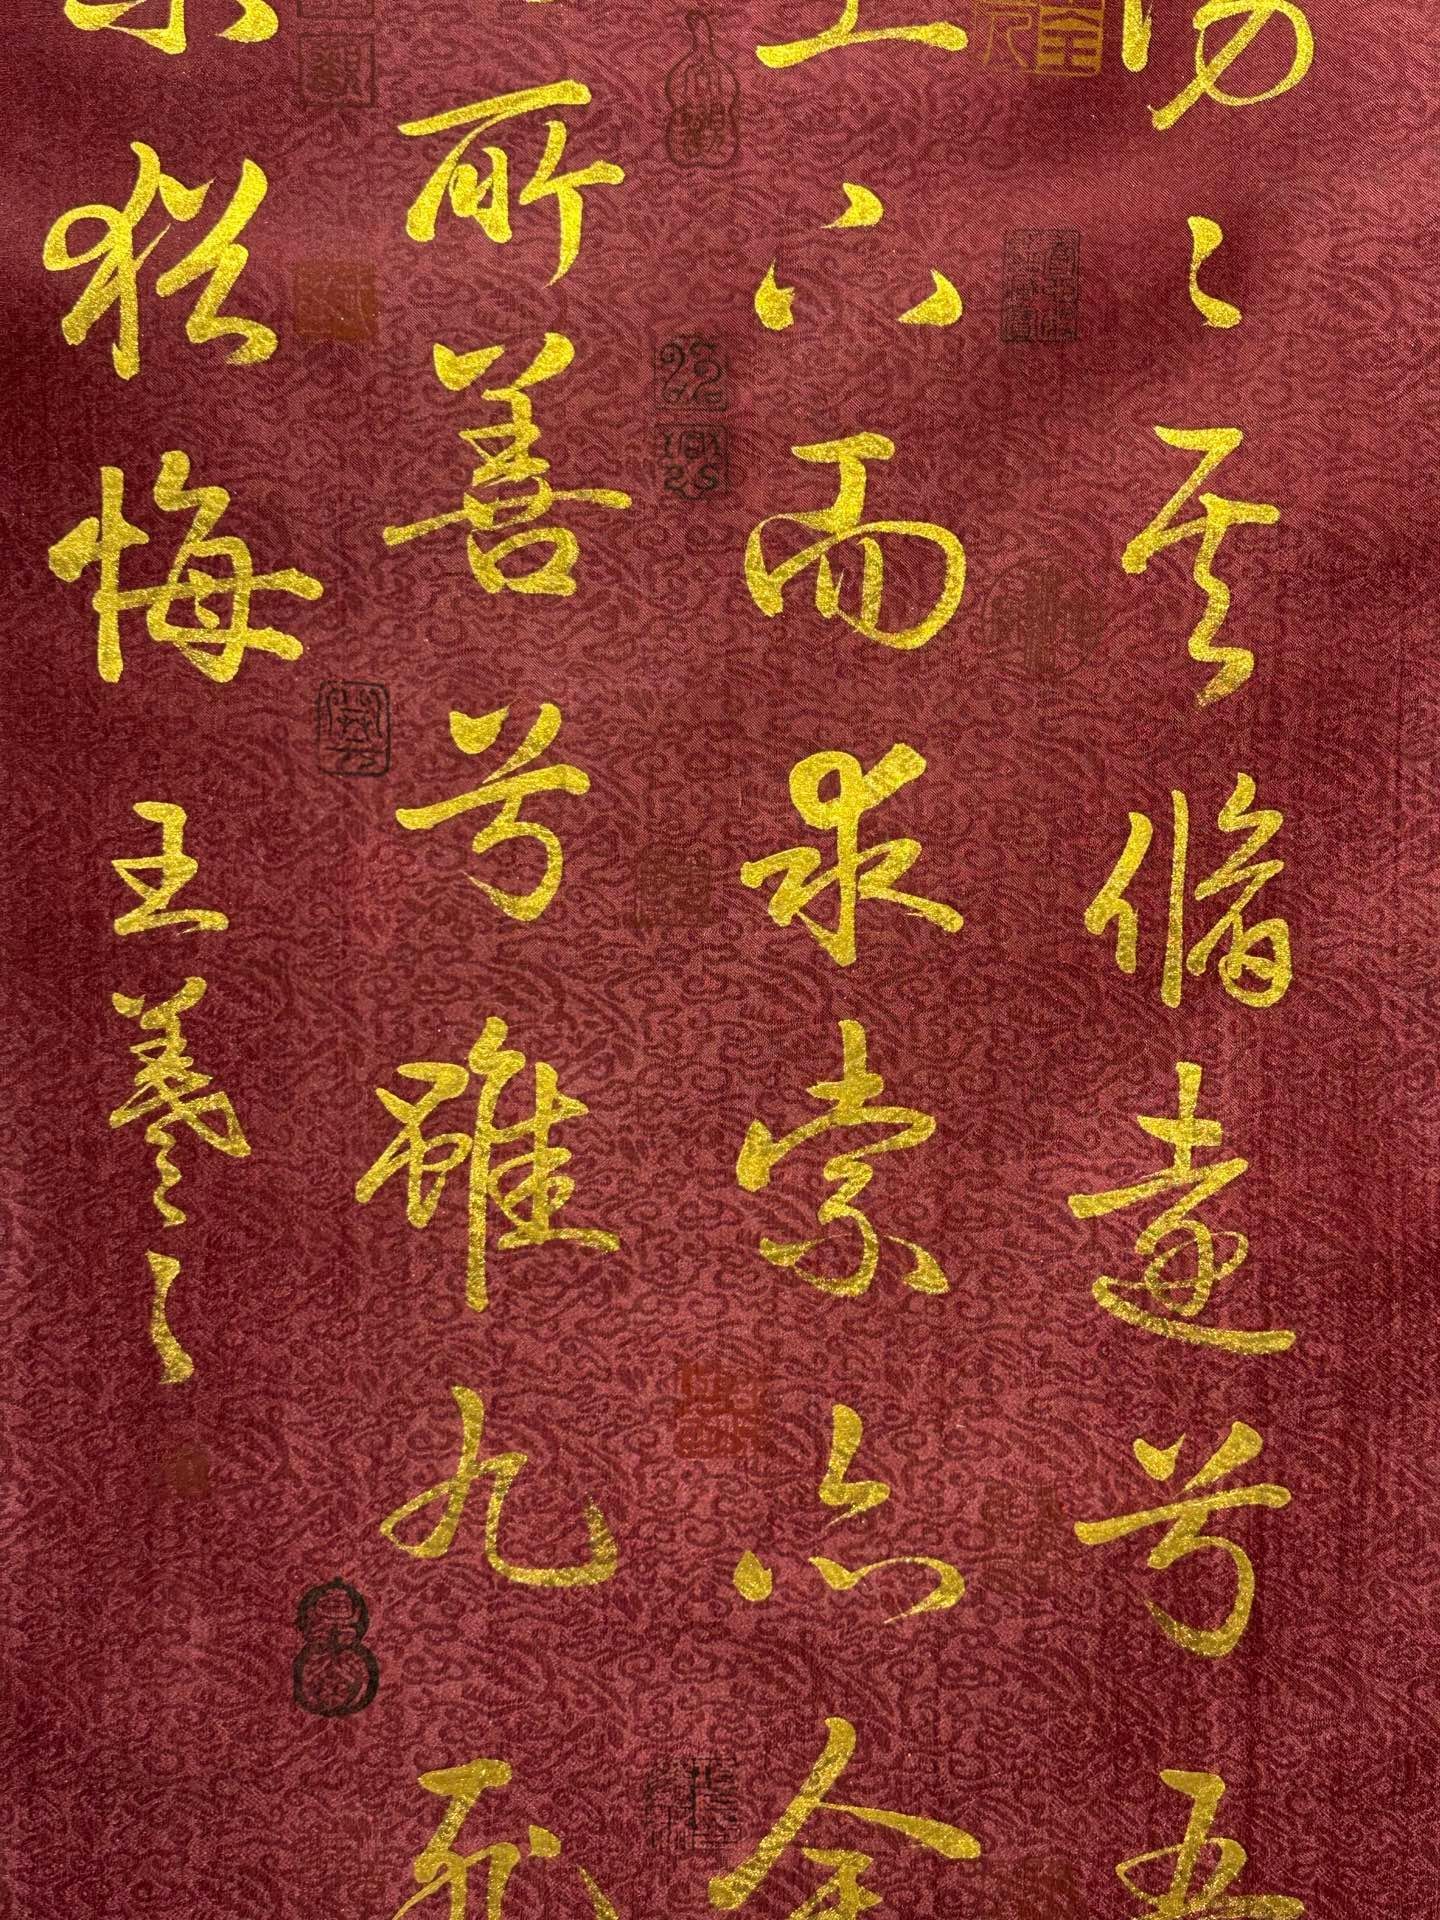 〻其脩遠兮吾
上下而求索亦余
所善兮雖九死
猶悔
王羲之